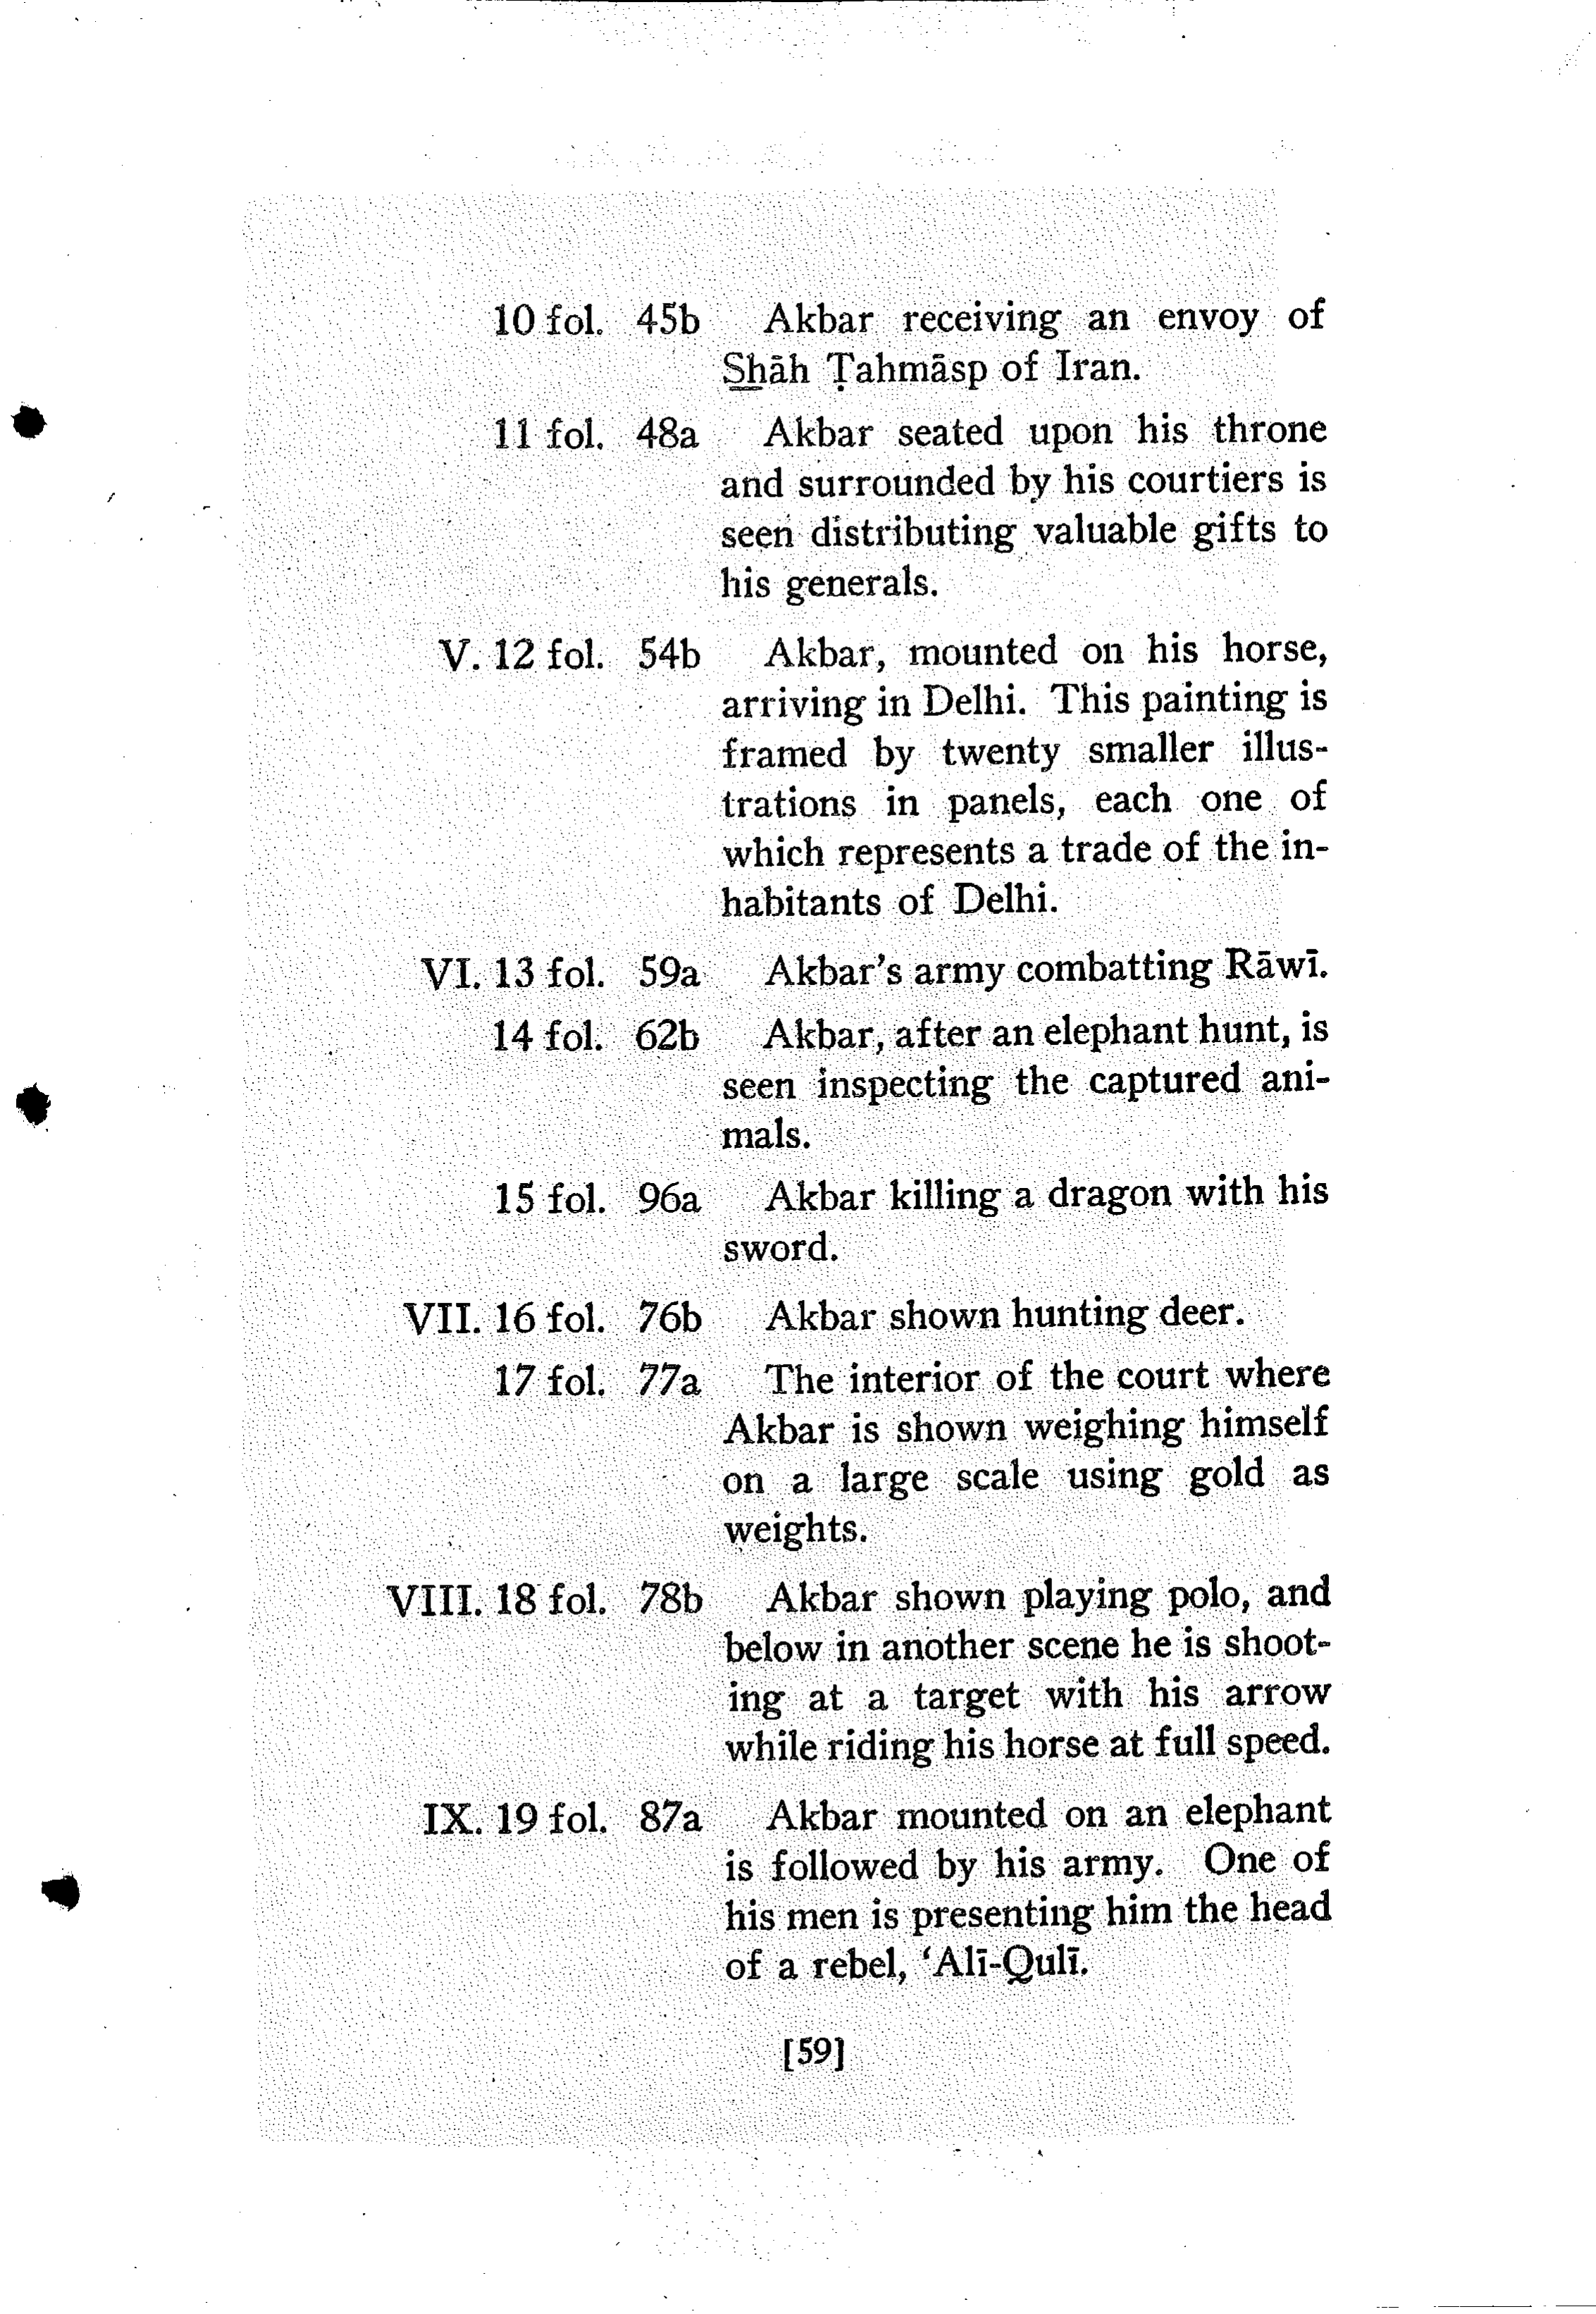 10 fol. 45b Akbar receiving an envoy of
Shāh Ṭahmāsp of Iran.
11 fol. 48a Akbar seated upon his throne
and surrounded by his courtiers is
seen distributing valuable gifts to
his generals.
V. 12 fol. 54b Akbar, mounted on his horse,
arriving in Delhi. This painting is
framed by twenty smaller illus-
trations in panels, each one of
which represents a trade of the in-
habitants of Delhi.
VI. 13 fol. 59a Akbar's army combatting Rāwī.
14 fol. 62b Akbar, after an elephant hunt, is
seen inspecting the captured ani-
mals.
15 fol. 96a Akbar killing a dragon with his
sword.
VII. 16 fol. 76b Akbar shown hunting deer.
17 fol. 77a The interior of the court where
Akbar is shown weighing himself
on a large scale using gold as
weights.
VIII. 18 fol. 78b Akbar shown playing polo, and
below in another scene he is shoot-
ing at a target with his arrow
while riding his horse at full speed.
IX. 19 fol. 87a Akbar mounted on an elephant
is followed by his army. One of
his men is presenting him the head
of a rebel, ‘Alī-Qulī.
[59]